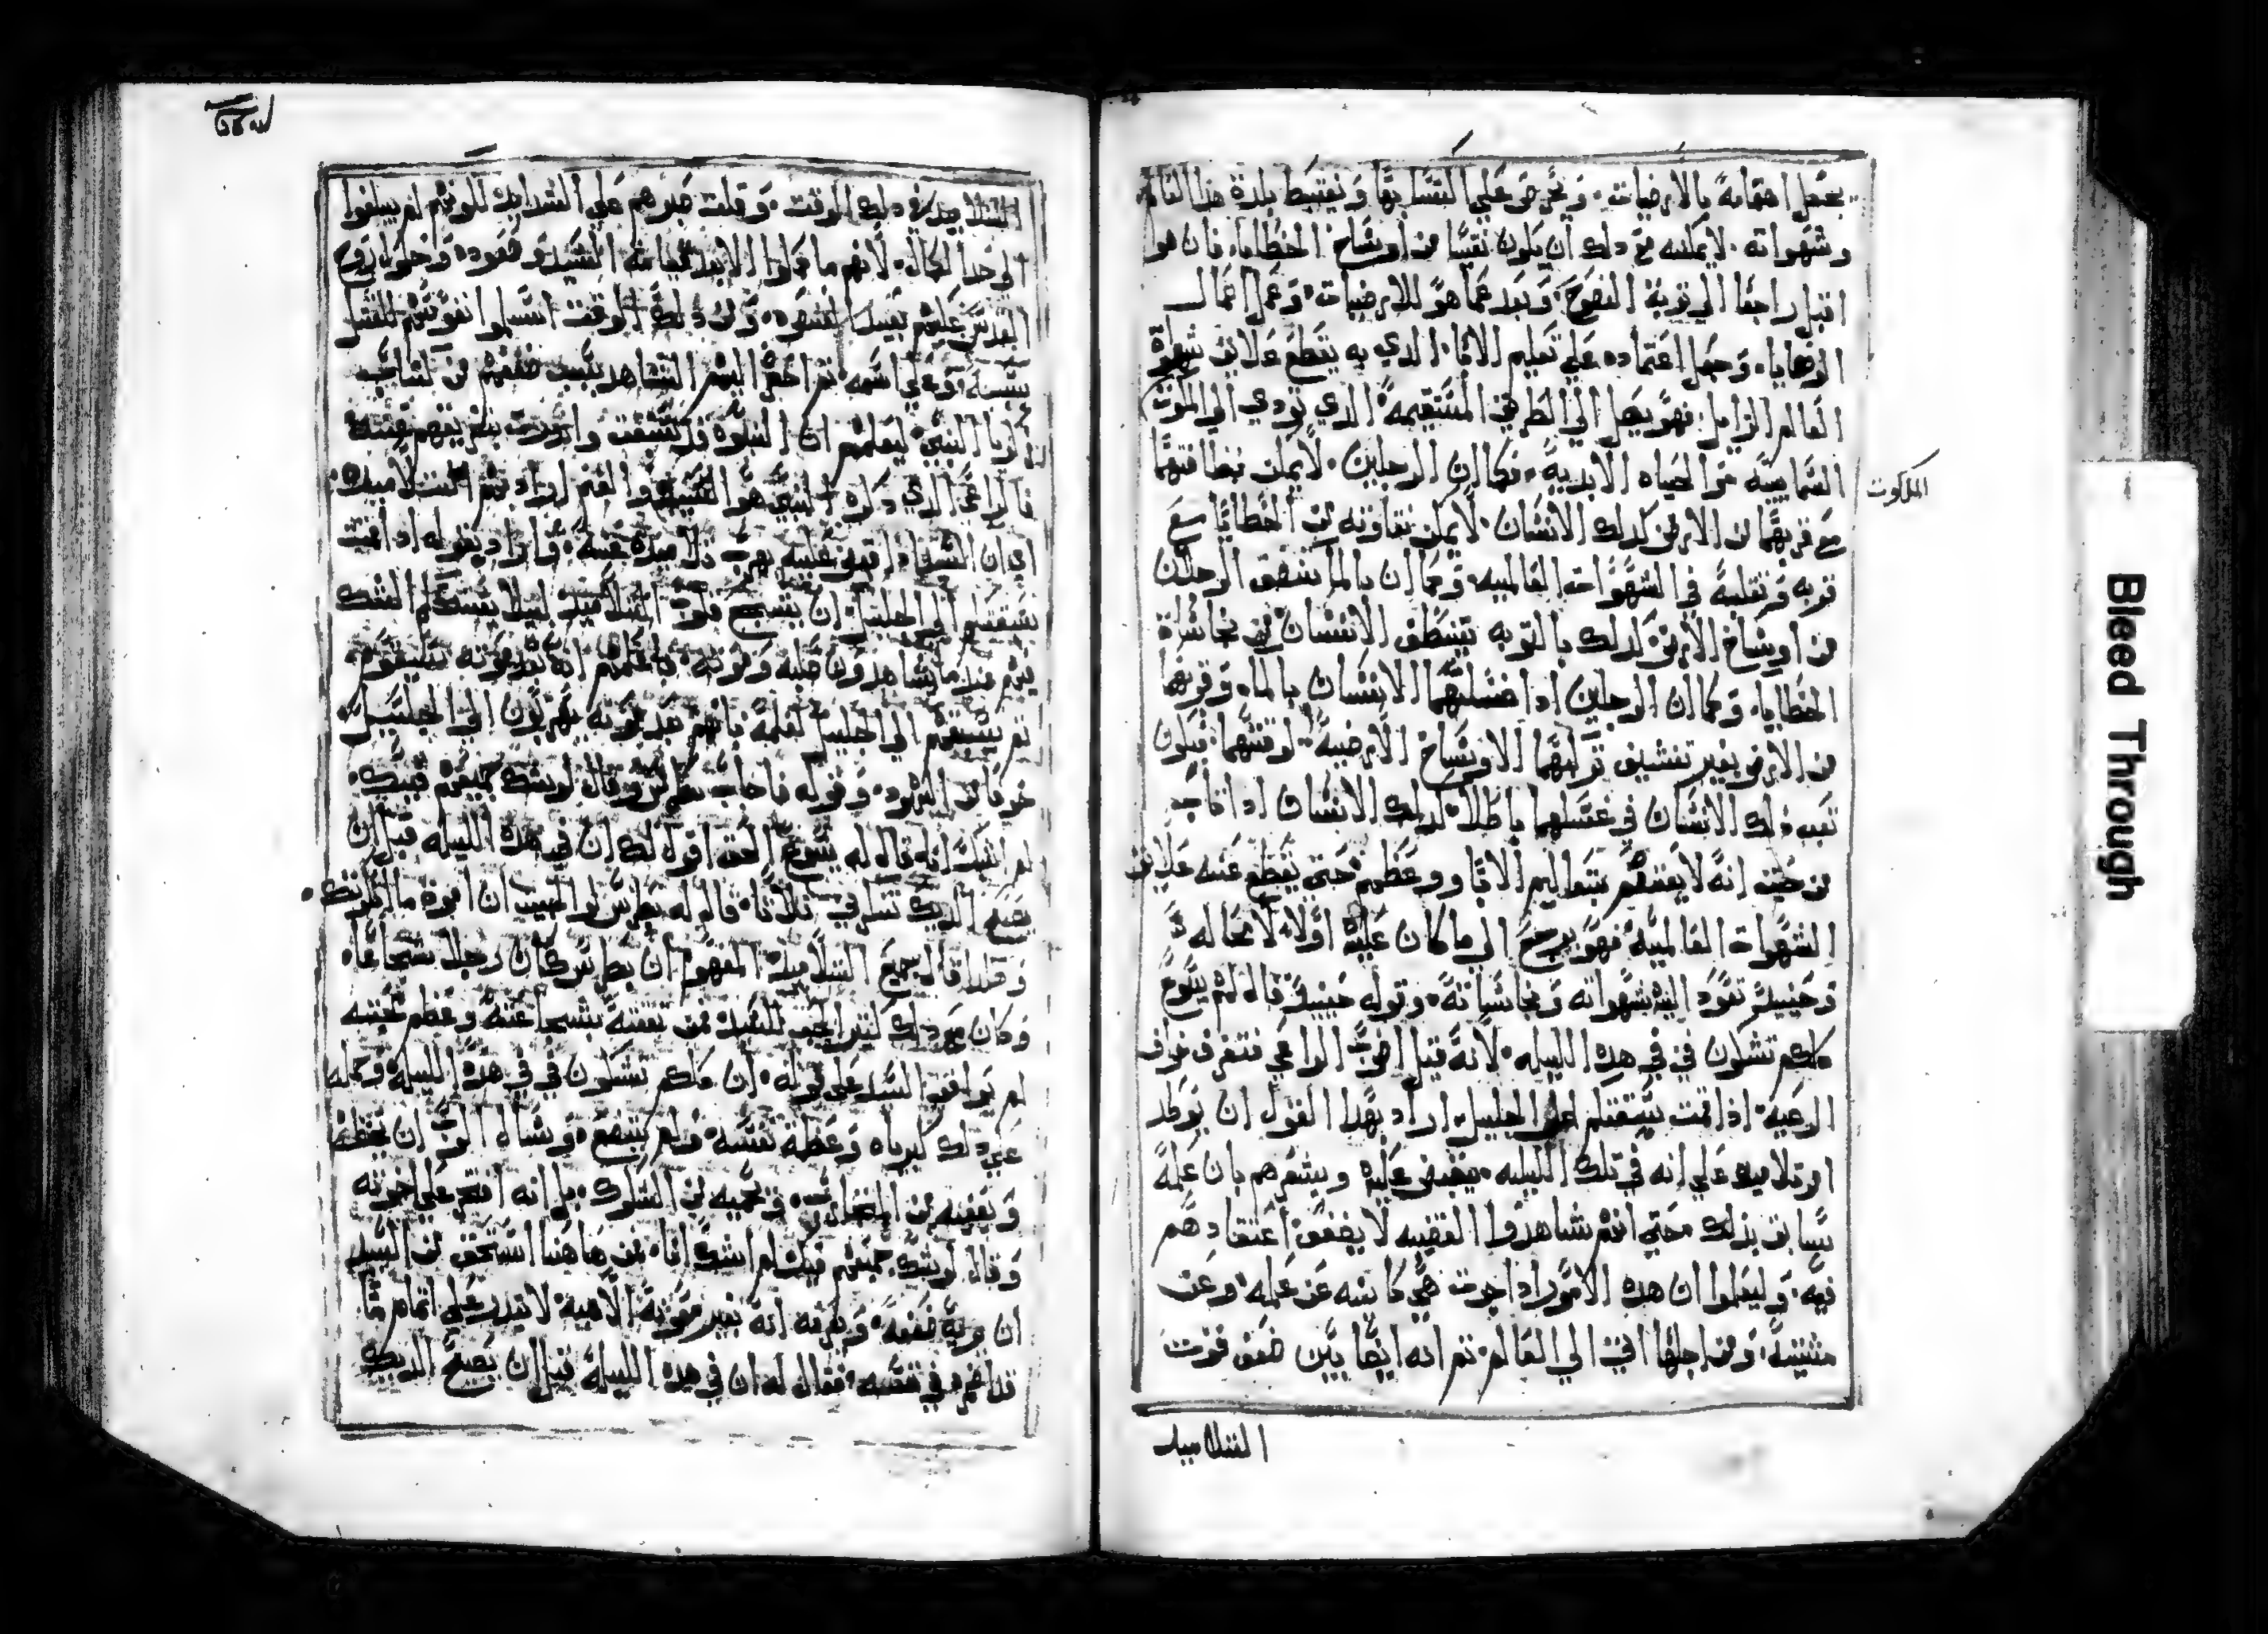 يجعل اهتمامه بالارضيات. ويحرص علي التشابها ويغتبط بلدة هدا العالم
وشهواته. لا يمكنه مع دلك ان يكون نقيا من اوساخ الخطايا. فان هو
اقبل راجعا الي توبة النصوح. وبعد عما هو للارضيات. وعمل اعمال
الوصايا. وجعل اعتماده علي تعليم الابا. الدي به يقطع علايق شهوة
العالم الزايل. فهو يصل الي الطريق المستقيمه. الدي تودي الي الملكوت
السماييه والحياه الابدية. فكما ان الرجلين. لا يمكن نظافتهما
الملكوت
مع قربهما من الارض كدلك الانسان. لا يمكن نقاوته من الخطايا مع
قربه وتقلبه في الشهوات العالميه. وكما ان بالما تنظف الرجلان
من اوساخ الارض كدلك بالتوبه يتنظف الانسان من نجاسات
الخطايا. وكما ان الرجلين ادا غسلهما الانسان بالما. وقربهما
من الارض بغير تنشيف تركبهما الاوساخ الارضيه. لوقتهما. فيكون
تعب دلك الانسان في غسلهما باطلا. كدلك الانسان ادا تاب
من حيث انه لا يعتصم بتعاليم الابا ووعظهم. حتي يقطع عنه علايق
الشهوات العالميه. فهو يرجع الي ما كان عليه اولا. لا محاله
وحينيد تعود اليه شهواته ونجاساته. وقوله حينيد قال لهم يسوع
كلكم تشكون في في هده الليله. لانه قيل اضرب الراعي فتتفرق خراف
الرعيه. ادا قمت سبقتكم الي الجليل. اراد بهدا القول ان يوطد
التلاميد علي انه في تلك الليله. يقبض عليه ويشعرهم بان علمه
سابق بدلك حتي انهم شاهدوا القضيه لا يضعف اعتقادهم
فيه. وليعلموا ان هده الامور ادا جرت هي كاينه عن علمه. وعن
مشيته. ومن اجلها اتي الي العالم. تم انه ايضا يبين ضعف قوت
التلاميد
التلاميد في دلك الوقت. وقلت صبرهم علي الشدايد لكونهم لم يبلغوا
الي حد الكمال. لانهم ما كملوا الا بعد قيامة السيد وصعوده. وحلول روح
القدس عليهم بعيد العنصره. وفي دلك الوقت اسلموا نفوسهم للقتل
بسببه. وعلي اسمه تم احضر اليهم الشاهد بسبب ضعفهم من كتاب
زكريا النبي. ليعلمهم ان النبوه قد سبقت واخبرت بتفريقهم عنه
فالراعي الدي دكره النبي هو السيد. والغنم اراد بهم التلاميد.
اي ان السيد ادا قبض عليه يهرب تلاميده عنه. واراد بقوله ادا قمت
سبقتكم الي الجليل. ان يشجع قلوب التلاميد ليلا يستحكم الشك
فيهم عند ما يشاهدون صلبه وموته. فاعلمهم انه بعد موته سيقوم
تم يسبقهم الي الجليل لعلمه بانهم بعد موته يهربون الي الجليل.
خوفا من اليهود. وقوله فاجاب بطرس وقال لو شك جميعهم فيك.
لم اشك انا. قال له يسوع الحق اقول لك ان في هده الليله قبل ان
يصيح الديك تنكرني تلاتا. قال له بطرس لو الجيت ان اموت ما انكرتك.
وهكدا قال جميع التلاميد. المفهوم ان بطرس كان رجلا شجاعا.
وكان مع دلك كتير الحب للسيد. فمن تقته بشجاعته وعظم محبته
لم يوافق السيد علي قوله. ان كلكم تشكون في في هده الليله. وحمله
علي دلك كبرياه وعظمة نفسه. ولم يتضع. ويسال الرب ان يحفظه
ويعينه من التجارب. ويحميه من الشكوك. بل انه افتخر علي اخوته
وقال لو شك جميعهم فيك لم اشك انا. فمن هاهنا استحق من السيد
ان يريه ضعفه. ويعرفه انه بغير معونة الاهيه لا يقدر علي اتمام ما
قد اضمره في نفسه. فقال له ان في هده الليله قبل ان يصيح الديك